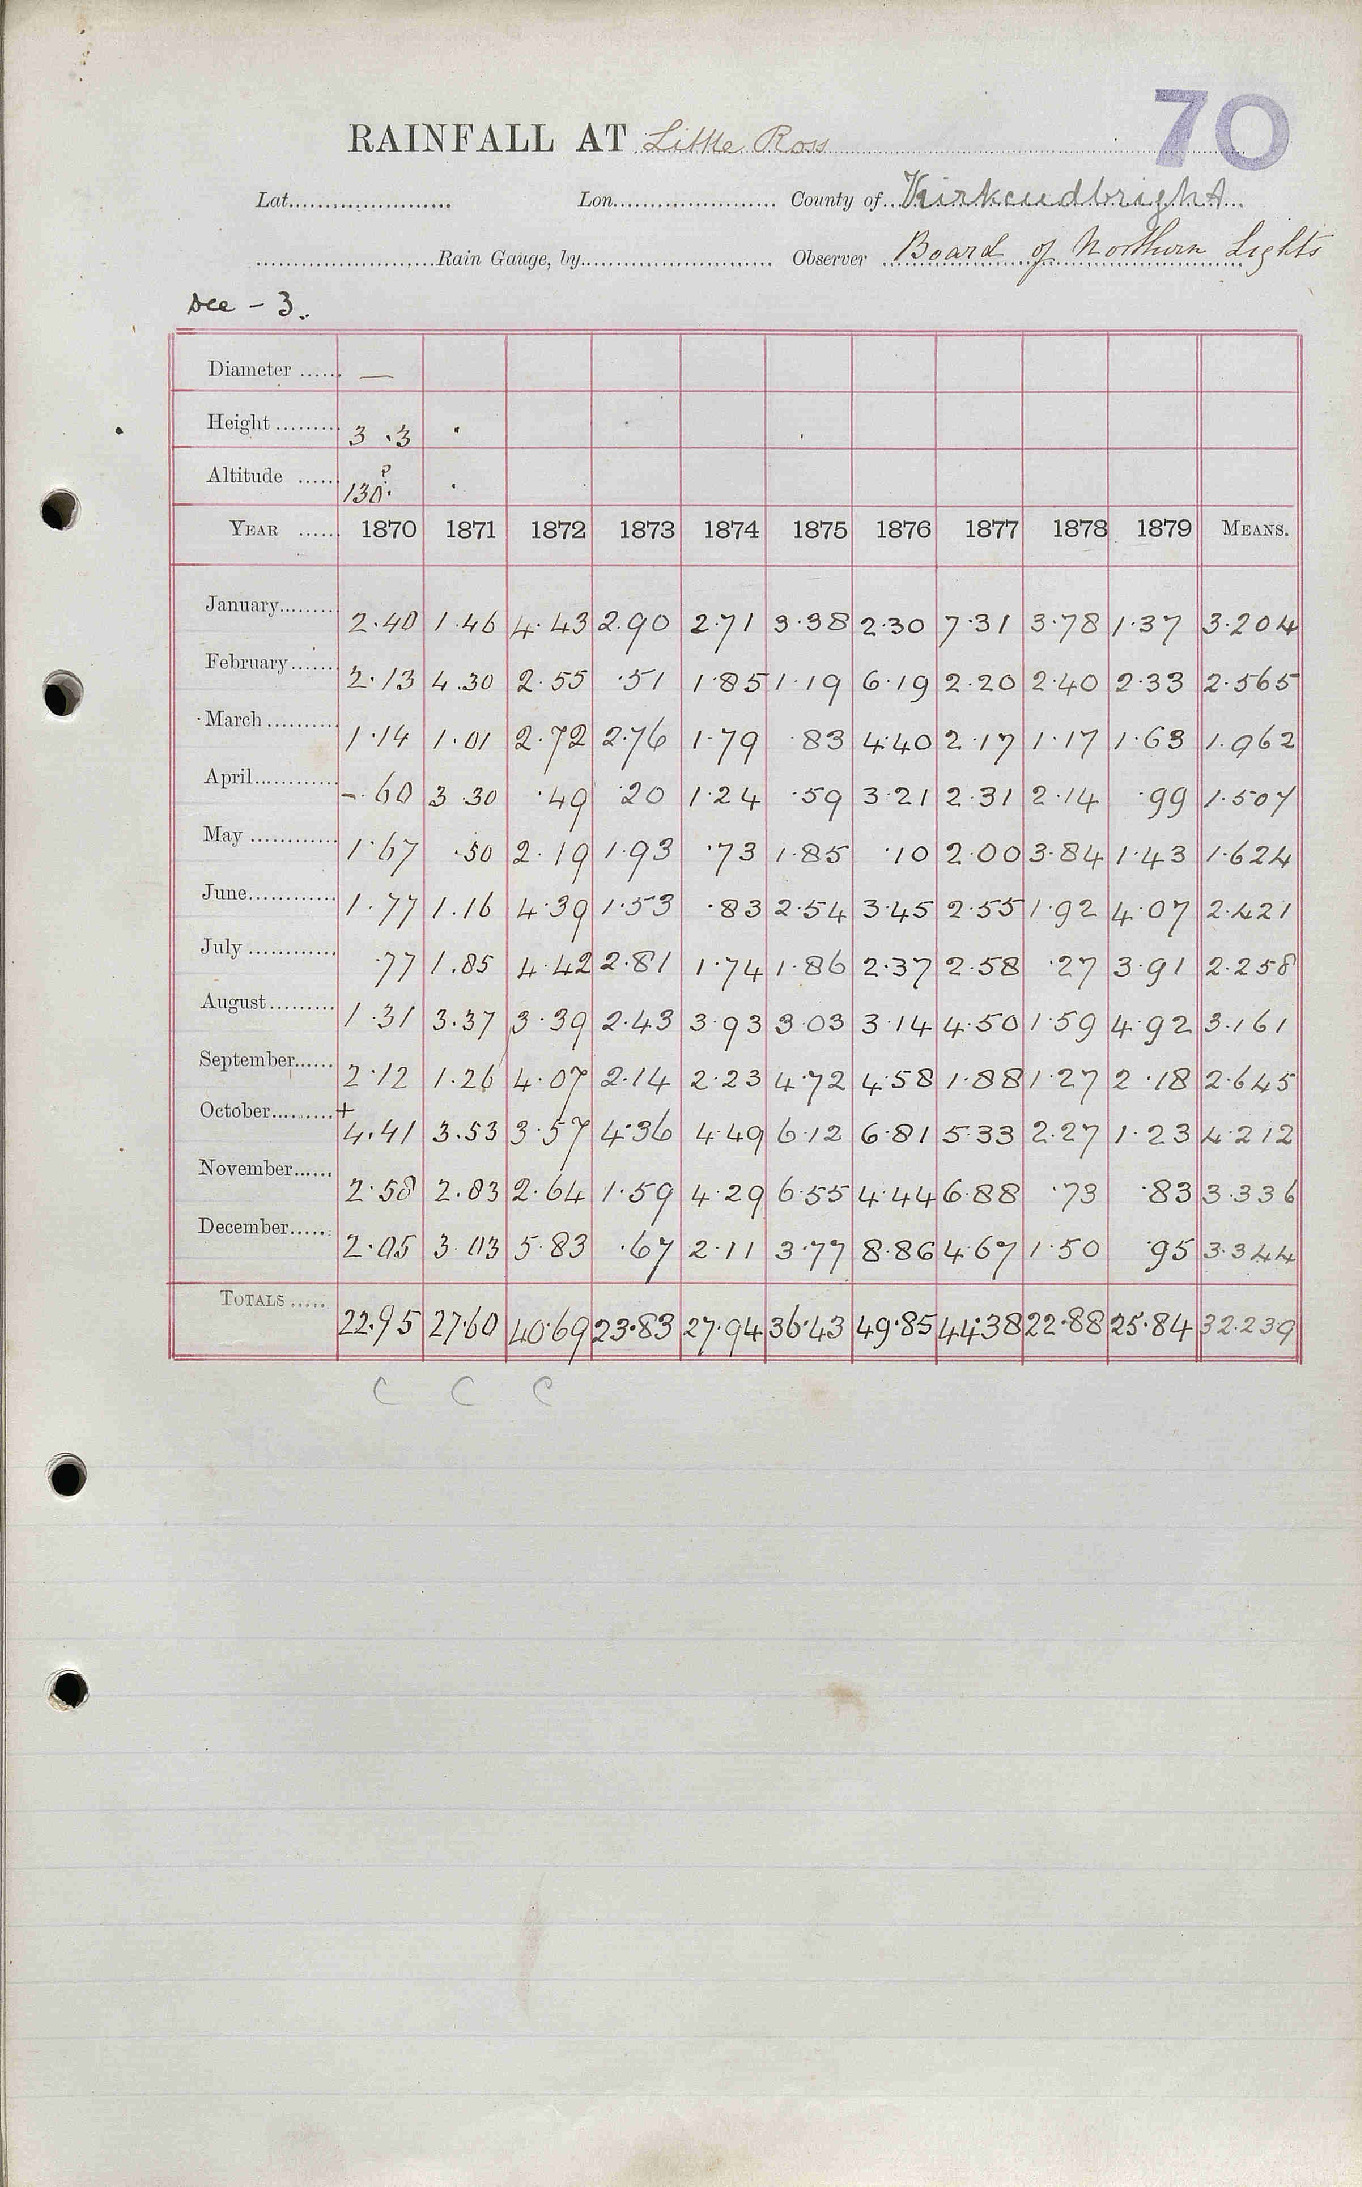 70
RAINFALL AT Little Ross
Lat. Lon. County of Kirkcudbright
Rain Gauge, by Observer Board of Northern Lights
Dec - 3.
Diameter —
Height 3 .3
Altitude 130 ?
YEAR 1870 1871 1872 1873 1874 1875 1876 1877 1878 1879 MEANS.
January 2.40 1.46 4.43 2.90 2.71 3.38 2.30 7.31 3.78 1.37 3.204
February 2.13 4.30 2.55 .51 1.85 1.19 6.19 2.20 2.40 2.33 2.565
March 1.14 1.01 2.72 2.76 1.79 .83 4.40 2.17 1.17 1.63 1.962
April -.60 3.30 .49 .20 1.24 .59 3.21 2.31 2.14 .99 1.507
May 1.67 .50 2.19 1.93 .73 1.85 .10 2.00 3.84 1.43 1.624
June 1.77 1.16 4.39 1.53 .83 2.54 3.45 2.55 1.92 4.07 2.421
July .77 1.85 4.42 2.81 1.74 1.86 2.37 2.58 .27 3.91 2.258
August 1.31 3.37 3.39 2.43 3.93 3.03 3.14 4.50 1.59 4.92 3.161
September 2.12 1.26 4.07 2.14 2.23 4.72 4.58 1.88 1.27 2.18 2.645
October + 4.41 3.53 3.57 4.36 4.49 6.12 6.81 5.33 2.27 1.23 4.212
November 2.58 2.83 2.64 1.59 4.29 6.55 4.44 6.88 .73 .83 3.336
December 2.05 3.03 5.83 .67 2.11 3.77 8.86 4.67 1.50 .95 3.344
TOTALS 22.95 27.60 40.69 23.83 27.94 36.43 49.85 44.38 22.88 25.84 32.239
C C C